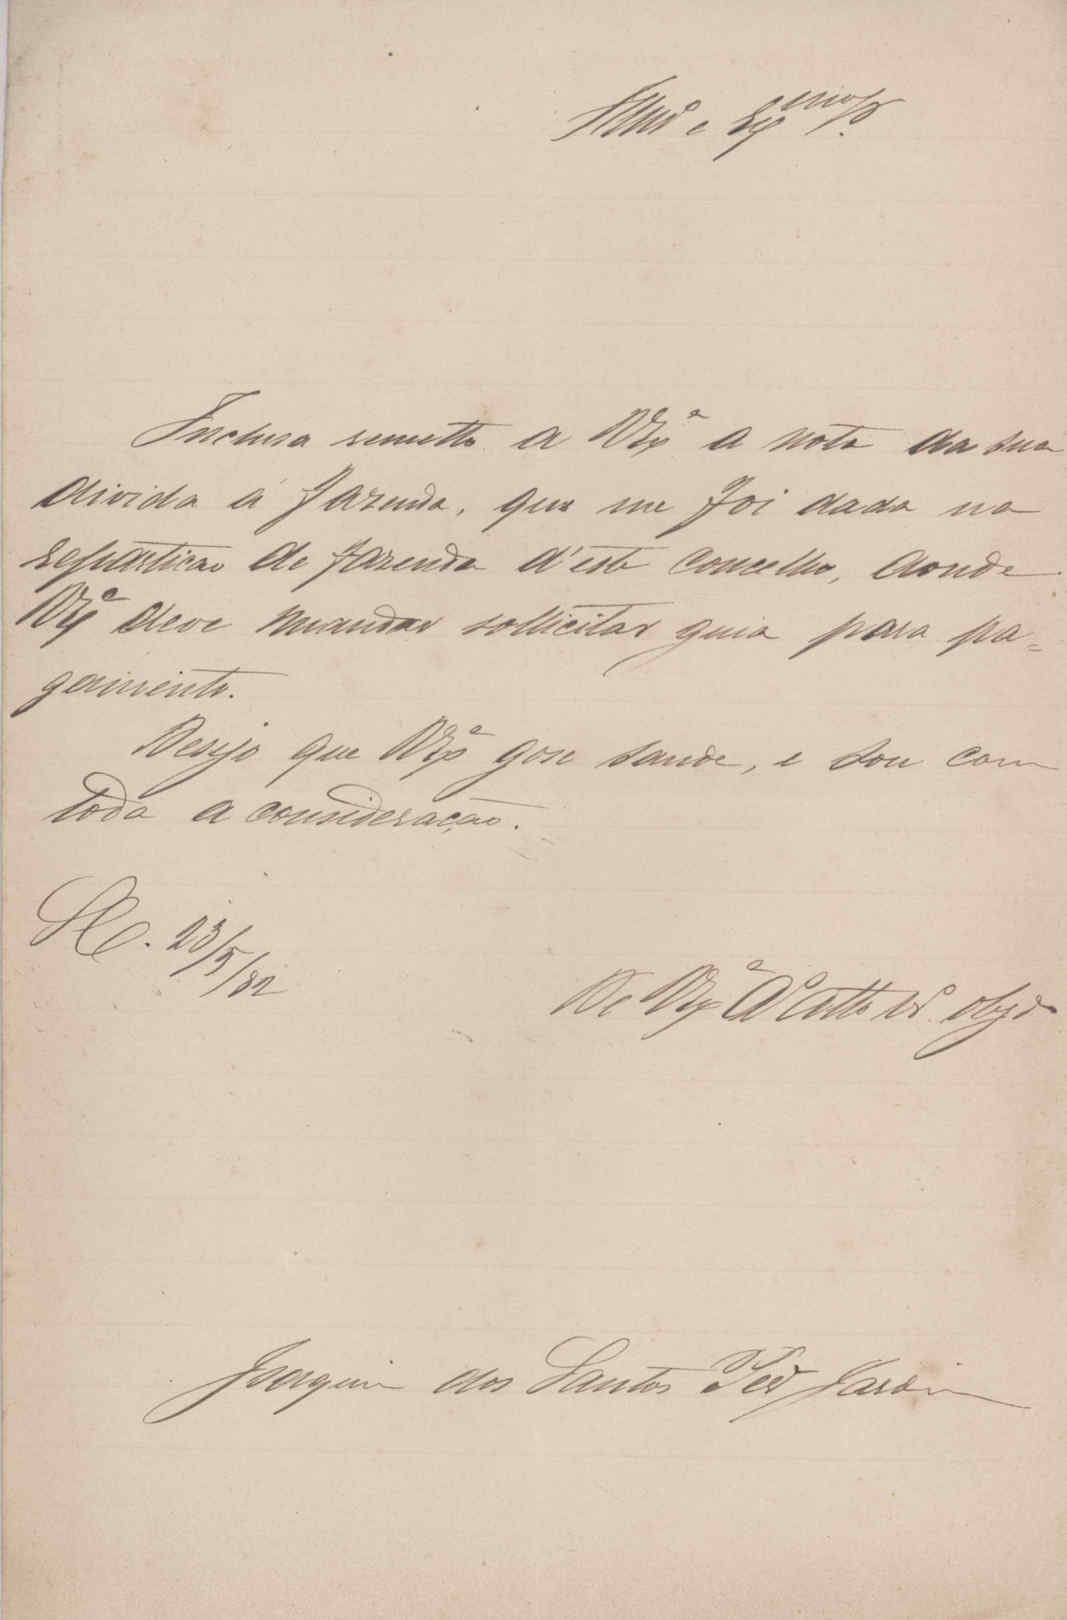 Illmo e Exmo Sr.
Inclusa remetto a V Exª a nota da sua
divida á fazenda, que me foi dada na
repartição de fazenda d'este concelho, aonde
V Exª deve mandar sollicitar guia para pa=
gamento.
Desejo que V Exª gose saude, e sou com
toda a consideração.
23/5/82
De V Exª Atto Vor obgdo
Joaquim dos Santos Jardim